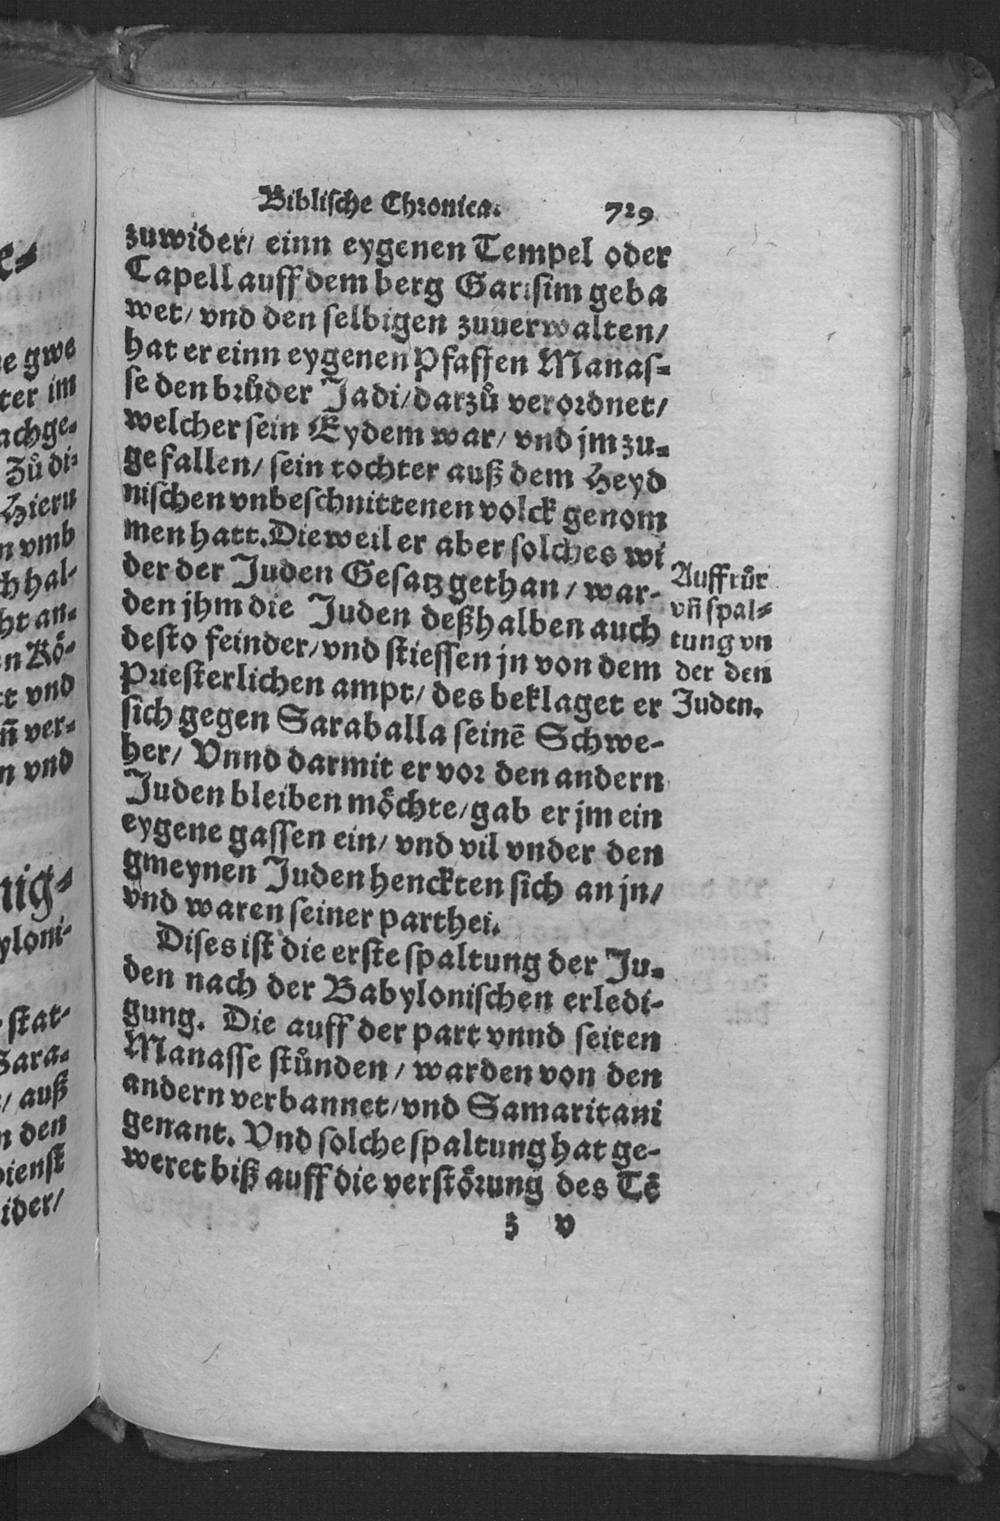 Biblische Chronica. 729
zuwider/ einn eygenen Tempel oder
Capell auff dem berg Garisim geba
wet/ vnd den selbigen zuuerwalten/
hat er einn eygenen Pfaffen Manas-
se den brůder Jadi/ darzů verordnet/
welcher sein Eydem war/ vnd jm zu-
gefallen/ sein tochter auß dem Heyd
nischen vnbeschnittenen volck genom
men hatt. Die weil er aber solches wi
der der Juden Gesatz gethan/ war-
den jhm die Juden deßhalben auch
desto feinder/ vnd stiessen jn von dem
Priesterlichen ampt/ des beklaget er
sich gegen Saraballa seinē Schwe-
her/ Vnnd darmit er vor den andern
Juden bleiben möchte/ gab er jm ein
eygene gassen ein/ vnd vil vnder den
gmeynen Juden henckten sich an jn/
vnd waren seiner parthei.
Dises ist die erste spaltung der Ju-
den nach der Babylonischen erledi-
gung. Die auff der part vnnd seiten
Manasse stůnden/ warden von den
andern verbannet/ vnd Samaritani
genant. Vnd solche spaltung hat ge-
weret biß auff die verstörung des Tē
z v
Auffrůr
vñ spal-
tung vn
der den
Juden.
e-
e gwe
ter im
achge-
Zů di-
Hieru
n vmb
ch hal-
ht an-
n Kö-
t vnd
ñ ver-
n vnd
nig-
yloni-
stat-
Sara-
/ auß
n den
dienst
ider/